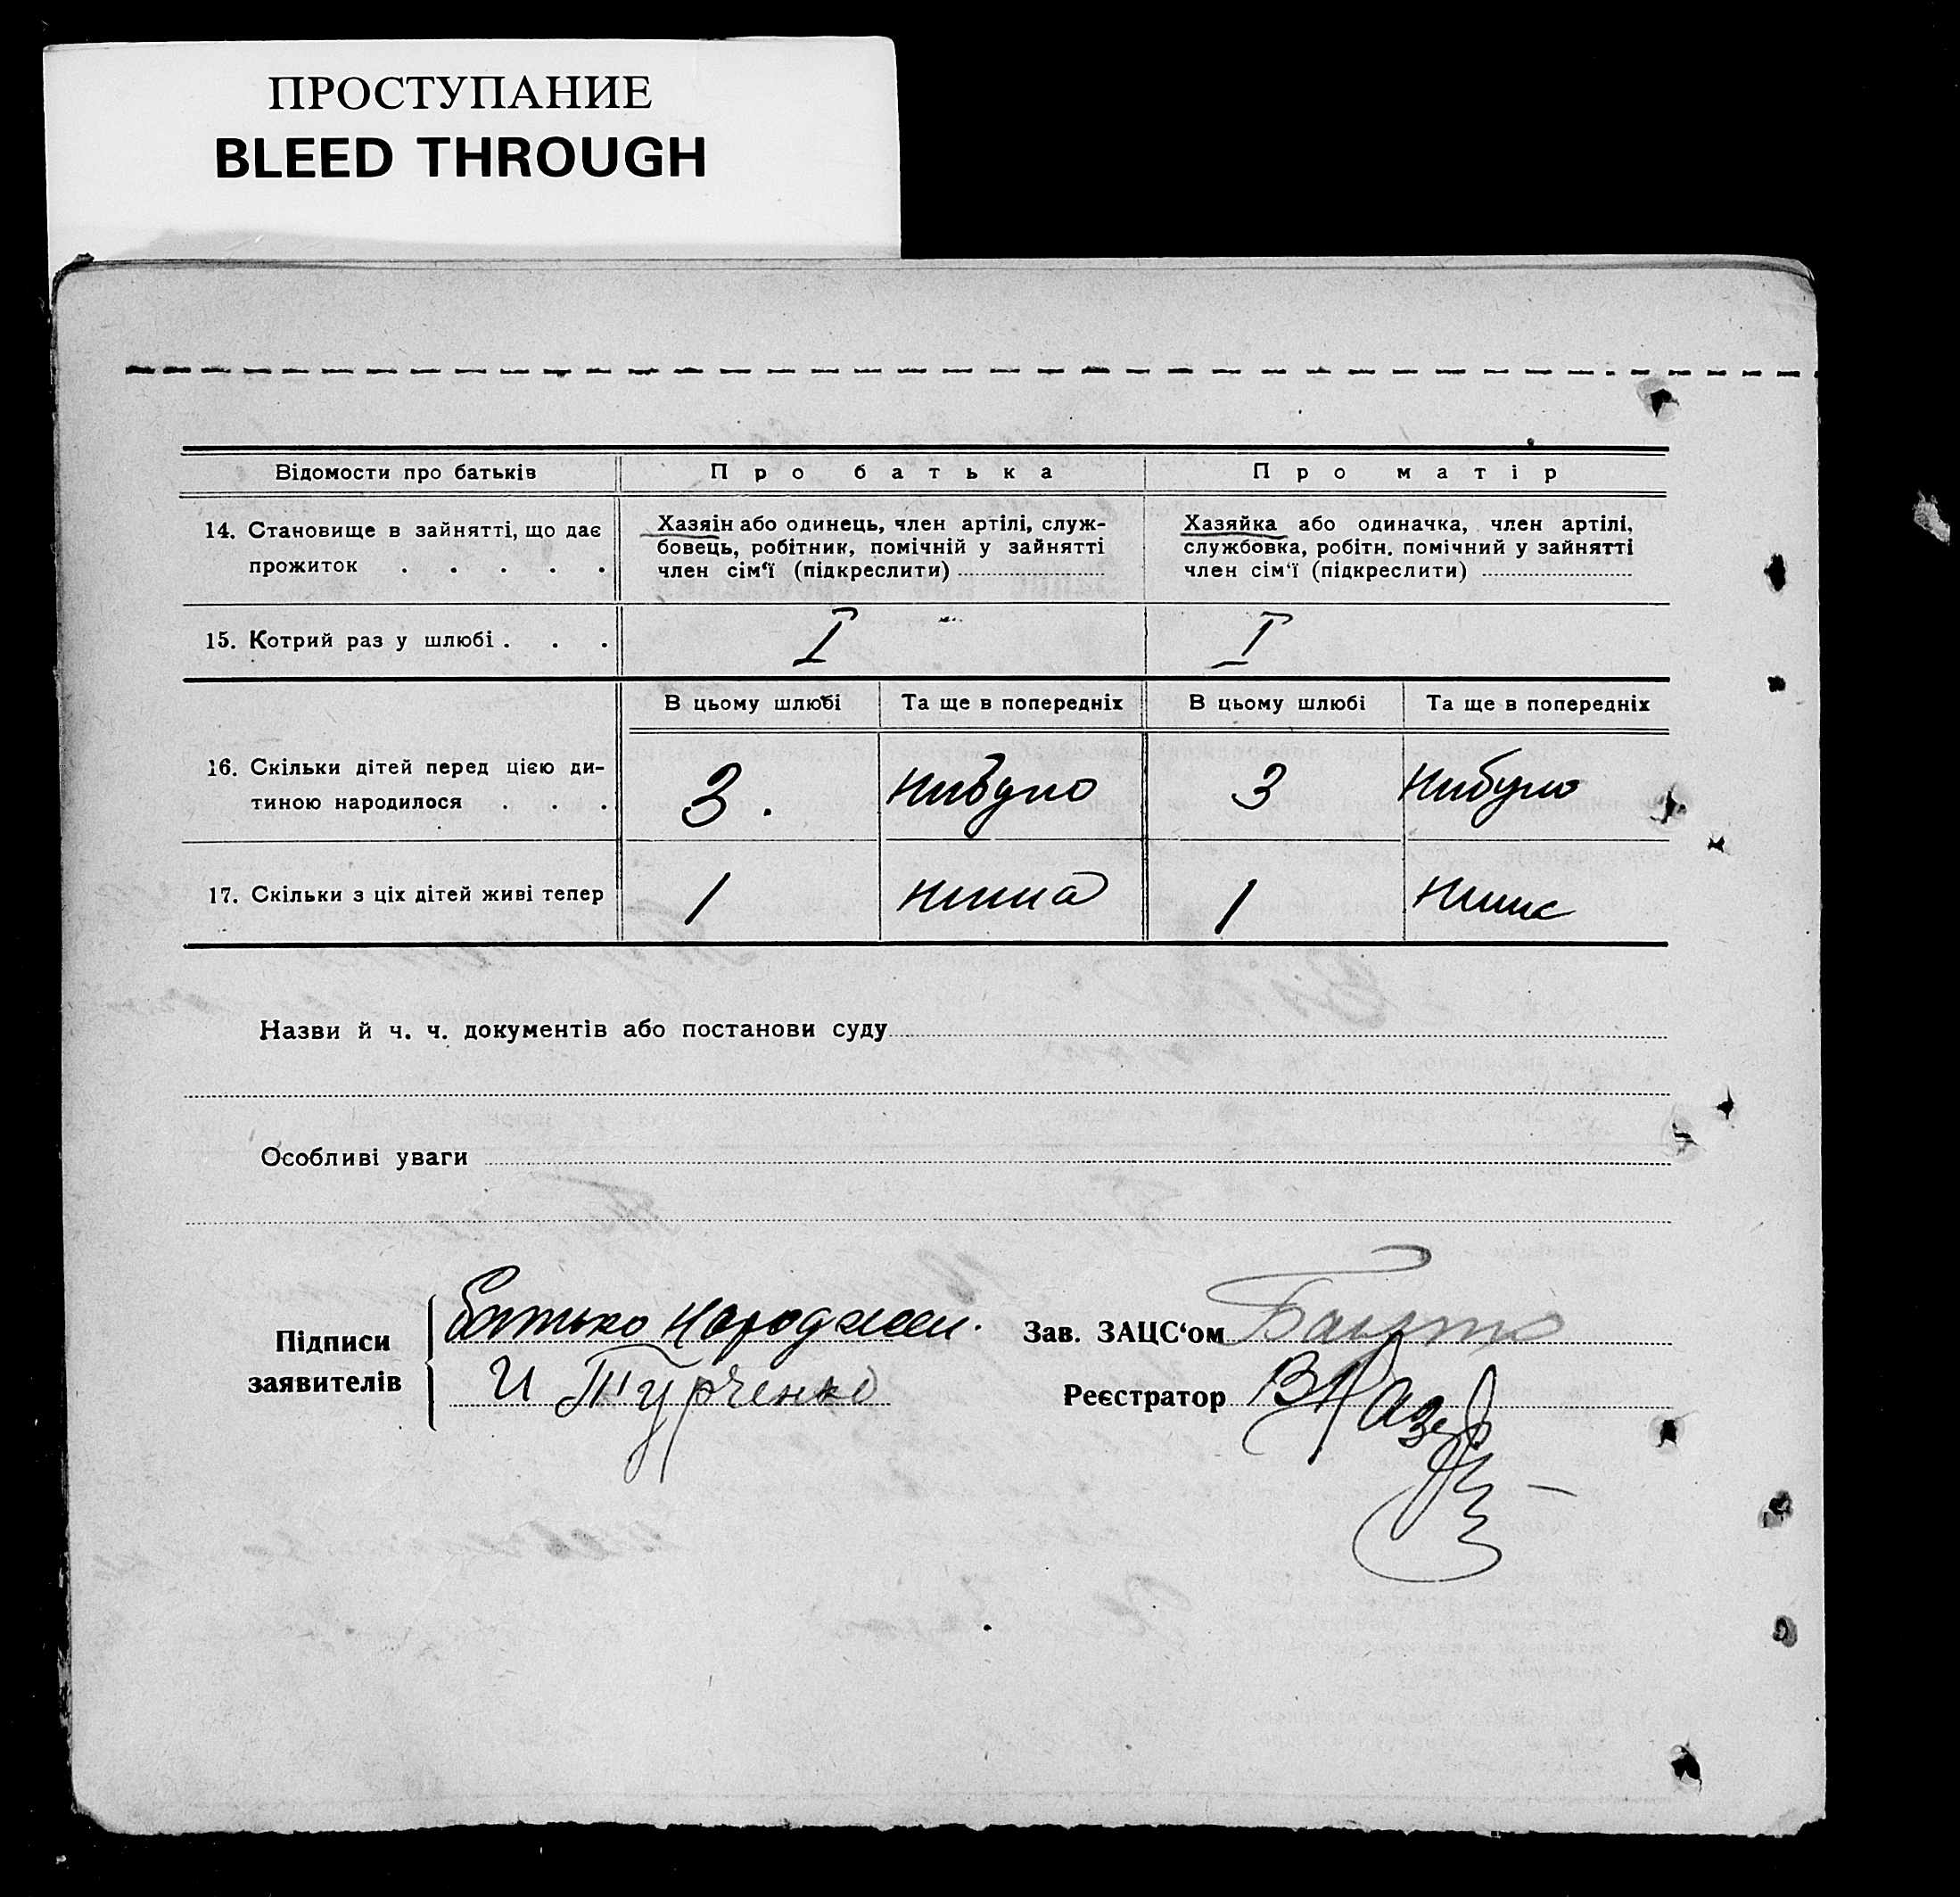 ПРОСТУПАНИЕ
BLEED THROUGH
Відомости про батьків
Про батька
Про матір
14. Становище в зайнятті, що дає
прожиток . . . . .
Хазяін або одинець, член артілі, служ-
бовець, робітник, помічній у зайнятті
член сім‘ї (підкреслити)
Хазяйка або одиначка, член артілі,
службовка, робітн. помічний у зайнятті
член сім‘ї (підкреслити)
15. Котрий раз у шлюбі . . .
I
I
В цьому шлюбі
Та ще в попередніх
В цьому шлюбі
Та ще в попередніх
16. Скільки дітей перед цією ди-
тиною народилося . . .
3.
нибуло
3
нибуло
17. Скільки з ціх дітей живі тепер
1
нима
1
нима
Назви й ч. ч. документів або постанови суду
Особливі уваги
Підписи
заявителів
Батько
И Турченко
Зав. ЗАЦС‘ом
Реєстратор